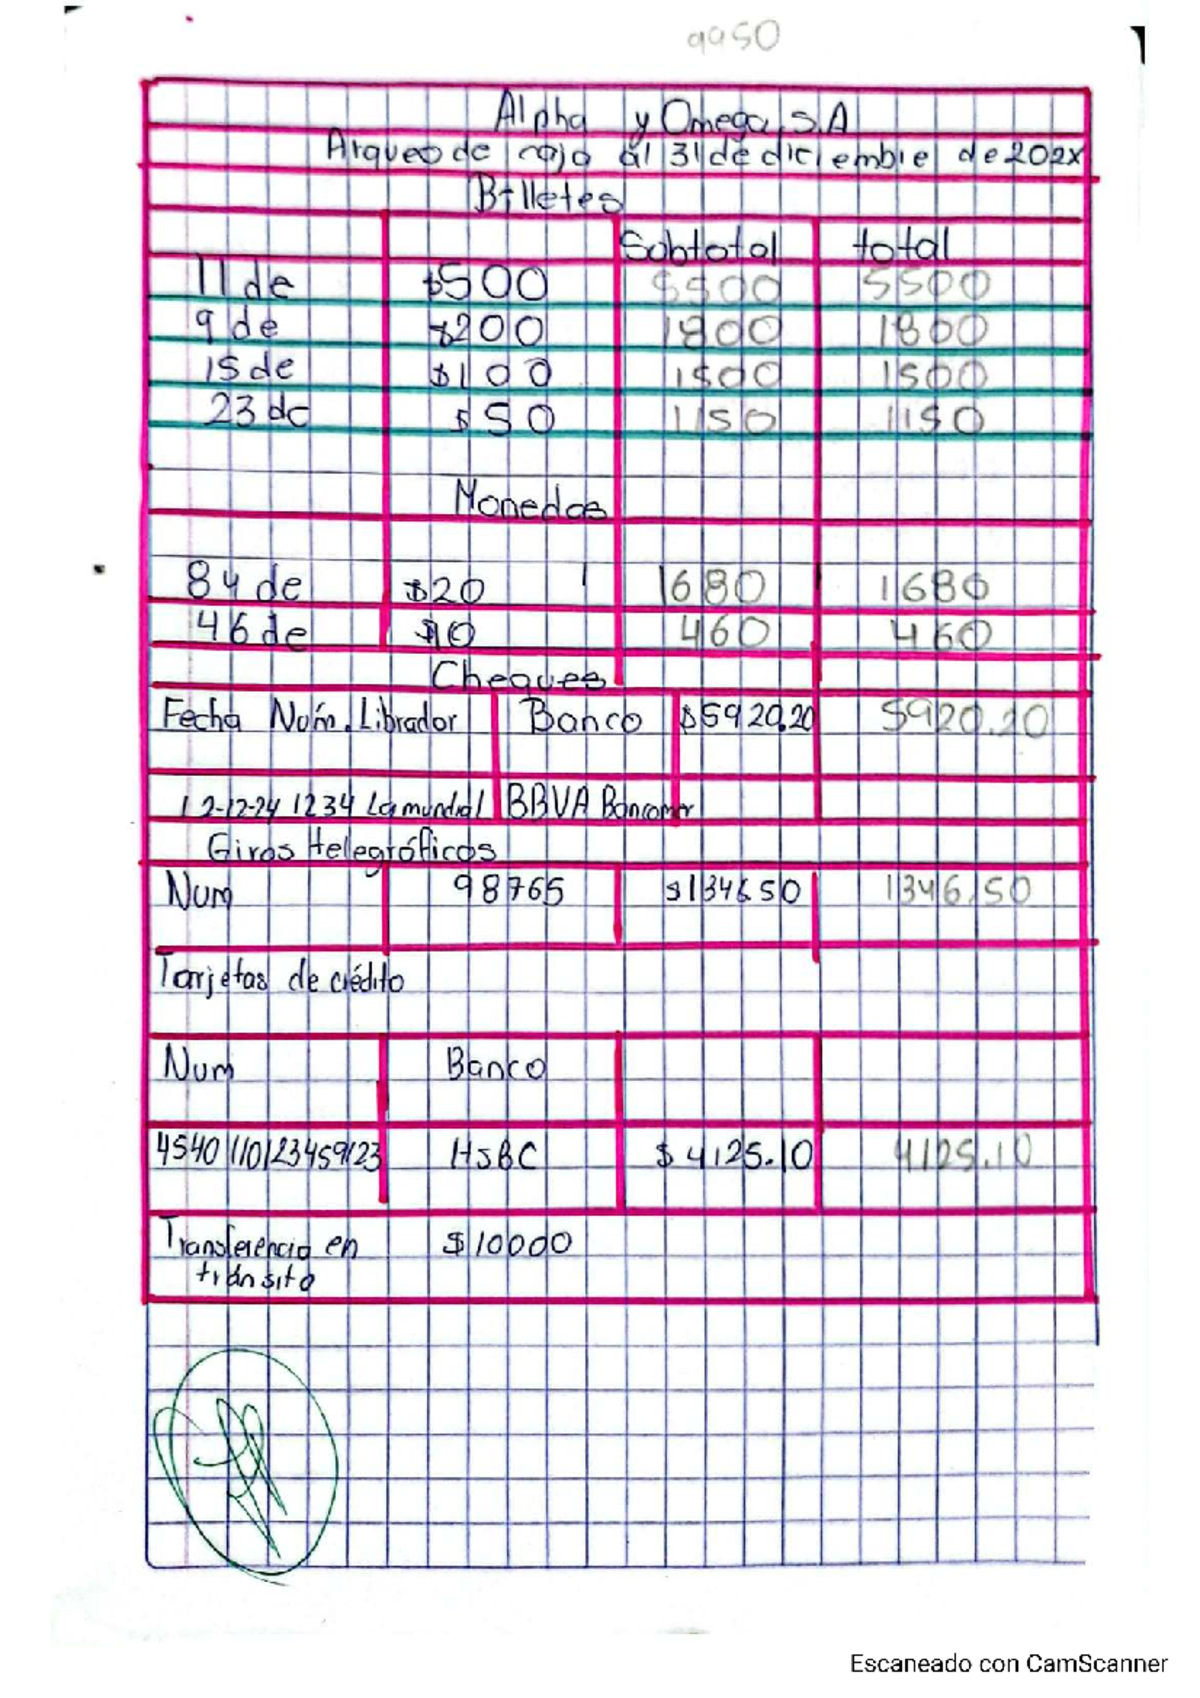 9950
Alpha y Omega, S.A
Arqueo de caja al 31 de diciembre de 202X
Billetes
Subtotal total
11 de $500 5500 5500
9 de $200 1800 1800
15 de $100 1500 1500
23 de $50 1150 1150
Monedas
84 de $20 1680 1680
46 de $10 460 460
Cheques
Fecha Num. Librador Banco $5920.20 5920.20
12-12-24 1234 La mundial BBVA Bancomer
Giros telegráficos
Num 98765 $1346.50 1346.50
Tarjetas de crédito
Num Banco
4540110123459123 HSBC $4125.10 4125.10
Transferencia en $10000
tránsito
Escaneado con CamScanner